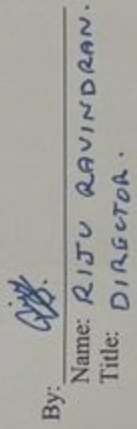 By:
Name: RIJU RAVINDRAN.
Title: DIRECTOR.